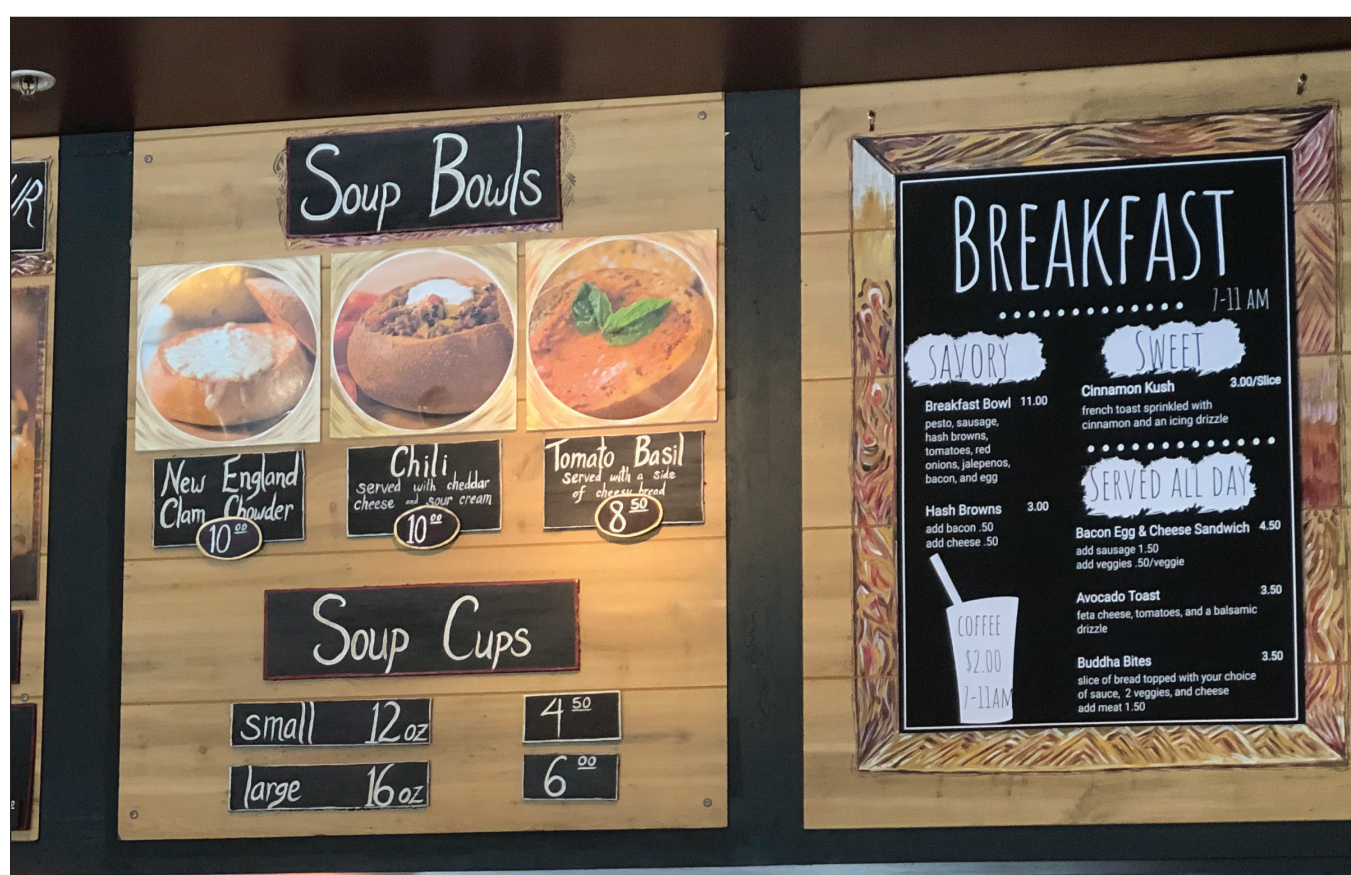 UR
Soup Bowls
New England
Clam Chowder
10 00
Chili
served with cheddar
cheese and sour cream
10 00
Tomato Basil
served with a side
of cheesy bread
8 50
Soup Cups
small 12 oz
4 50
large 16 oz
6 00
BREAKFAST
7-11 AM
SAVORY
Breakfast Bowl 11.00
pesto, sausage,
hash browns,
tomatoes, red
onions, jalepenos,
bacon, and egg
Hash Browns 3.00
add bacon .50
add cheese .50
COFFEE
$2.00
7-11AM
SWEET
Cinnamon Kush 3.00/Slice
french toast sprinkled with
cinnamon and an icing drizzle
SERVED ALL DAY
Bacon Egg & Cheese Sandwich 4.50
add sausage 1.50
add veggies .50/veggie
Avocado Toast 3.50
feta cheese, tomatoes, and a balsamic
drizzle
Buddha Bites 3.50
slice of bread topped with your choice
of sauce, 2 veggies, and cheese
add meat 1.50